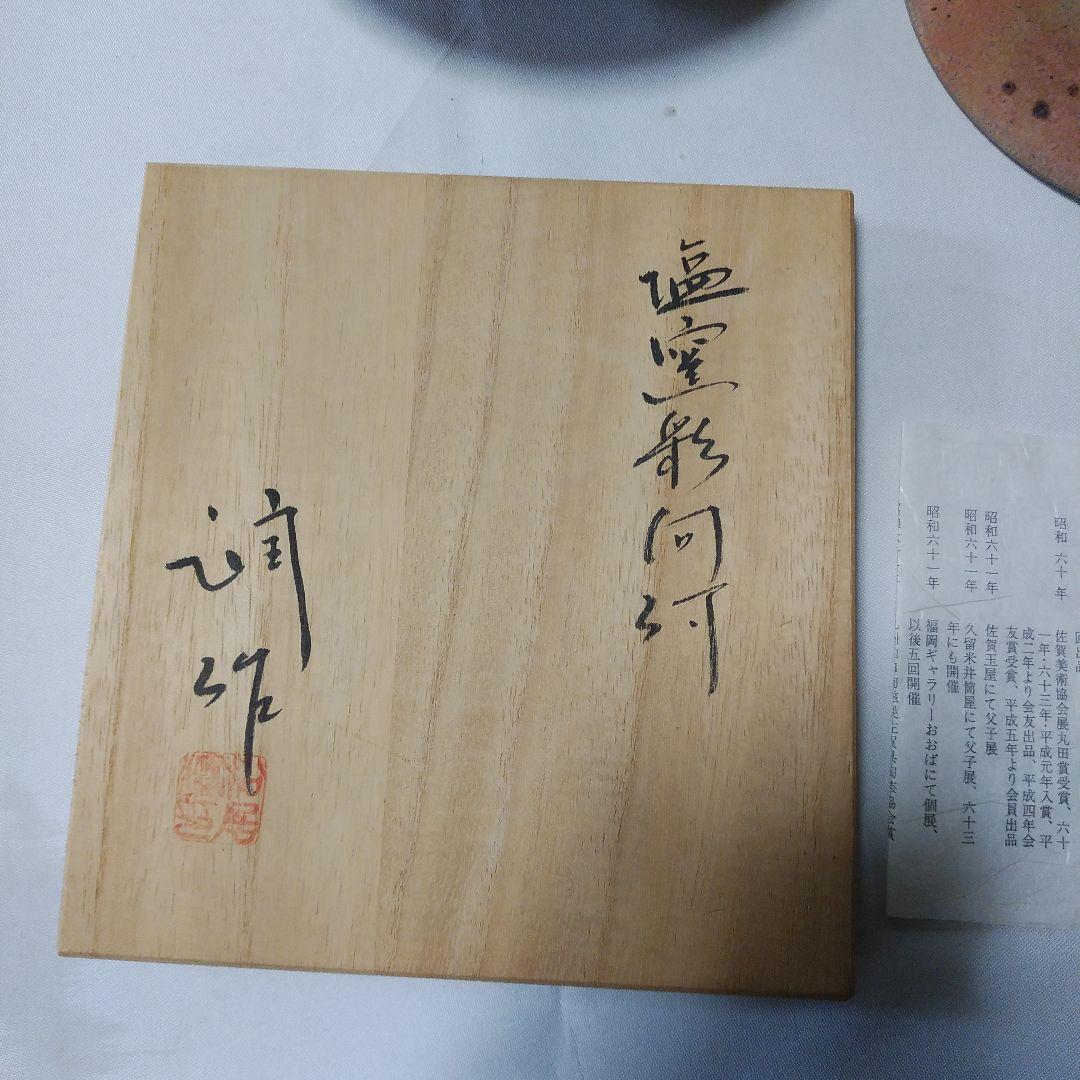 塩窯彩向付
潤作
昭和 六十 年
佐賀美術協会展丸田賞受賞、六十
一年・六十三年・平成元年入賞、平
成二年より会友出品、平成四年会
友賞受賞、平成五年より会員出品
昭和六十一年
佐賀玉屋にて父子展
昭和六十一年
久留米井筒屋にて父子展、六十三
年にも開催
昭和六十一年
福岡ギャラリーおおばにて個展、
以後五回開催